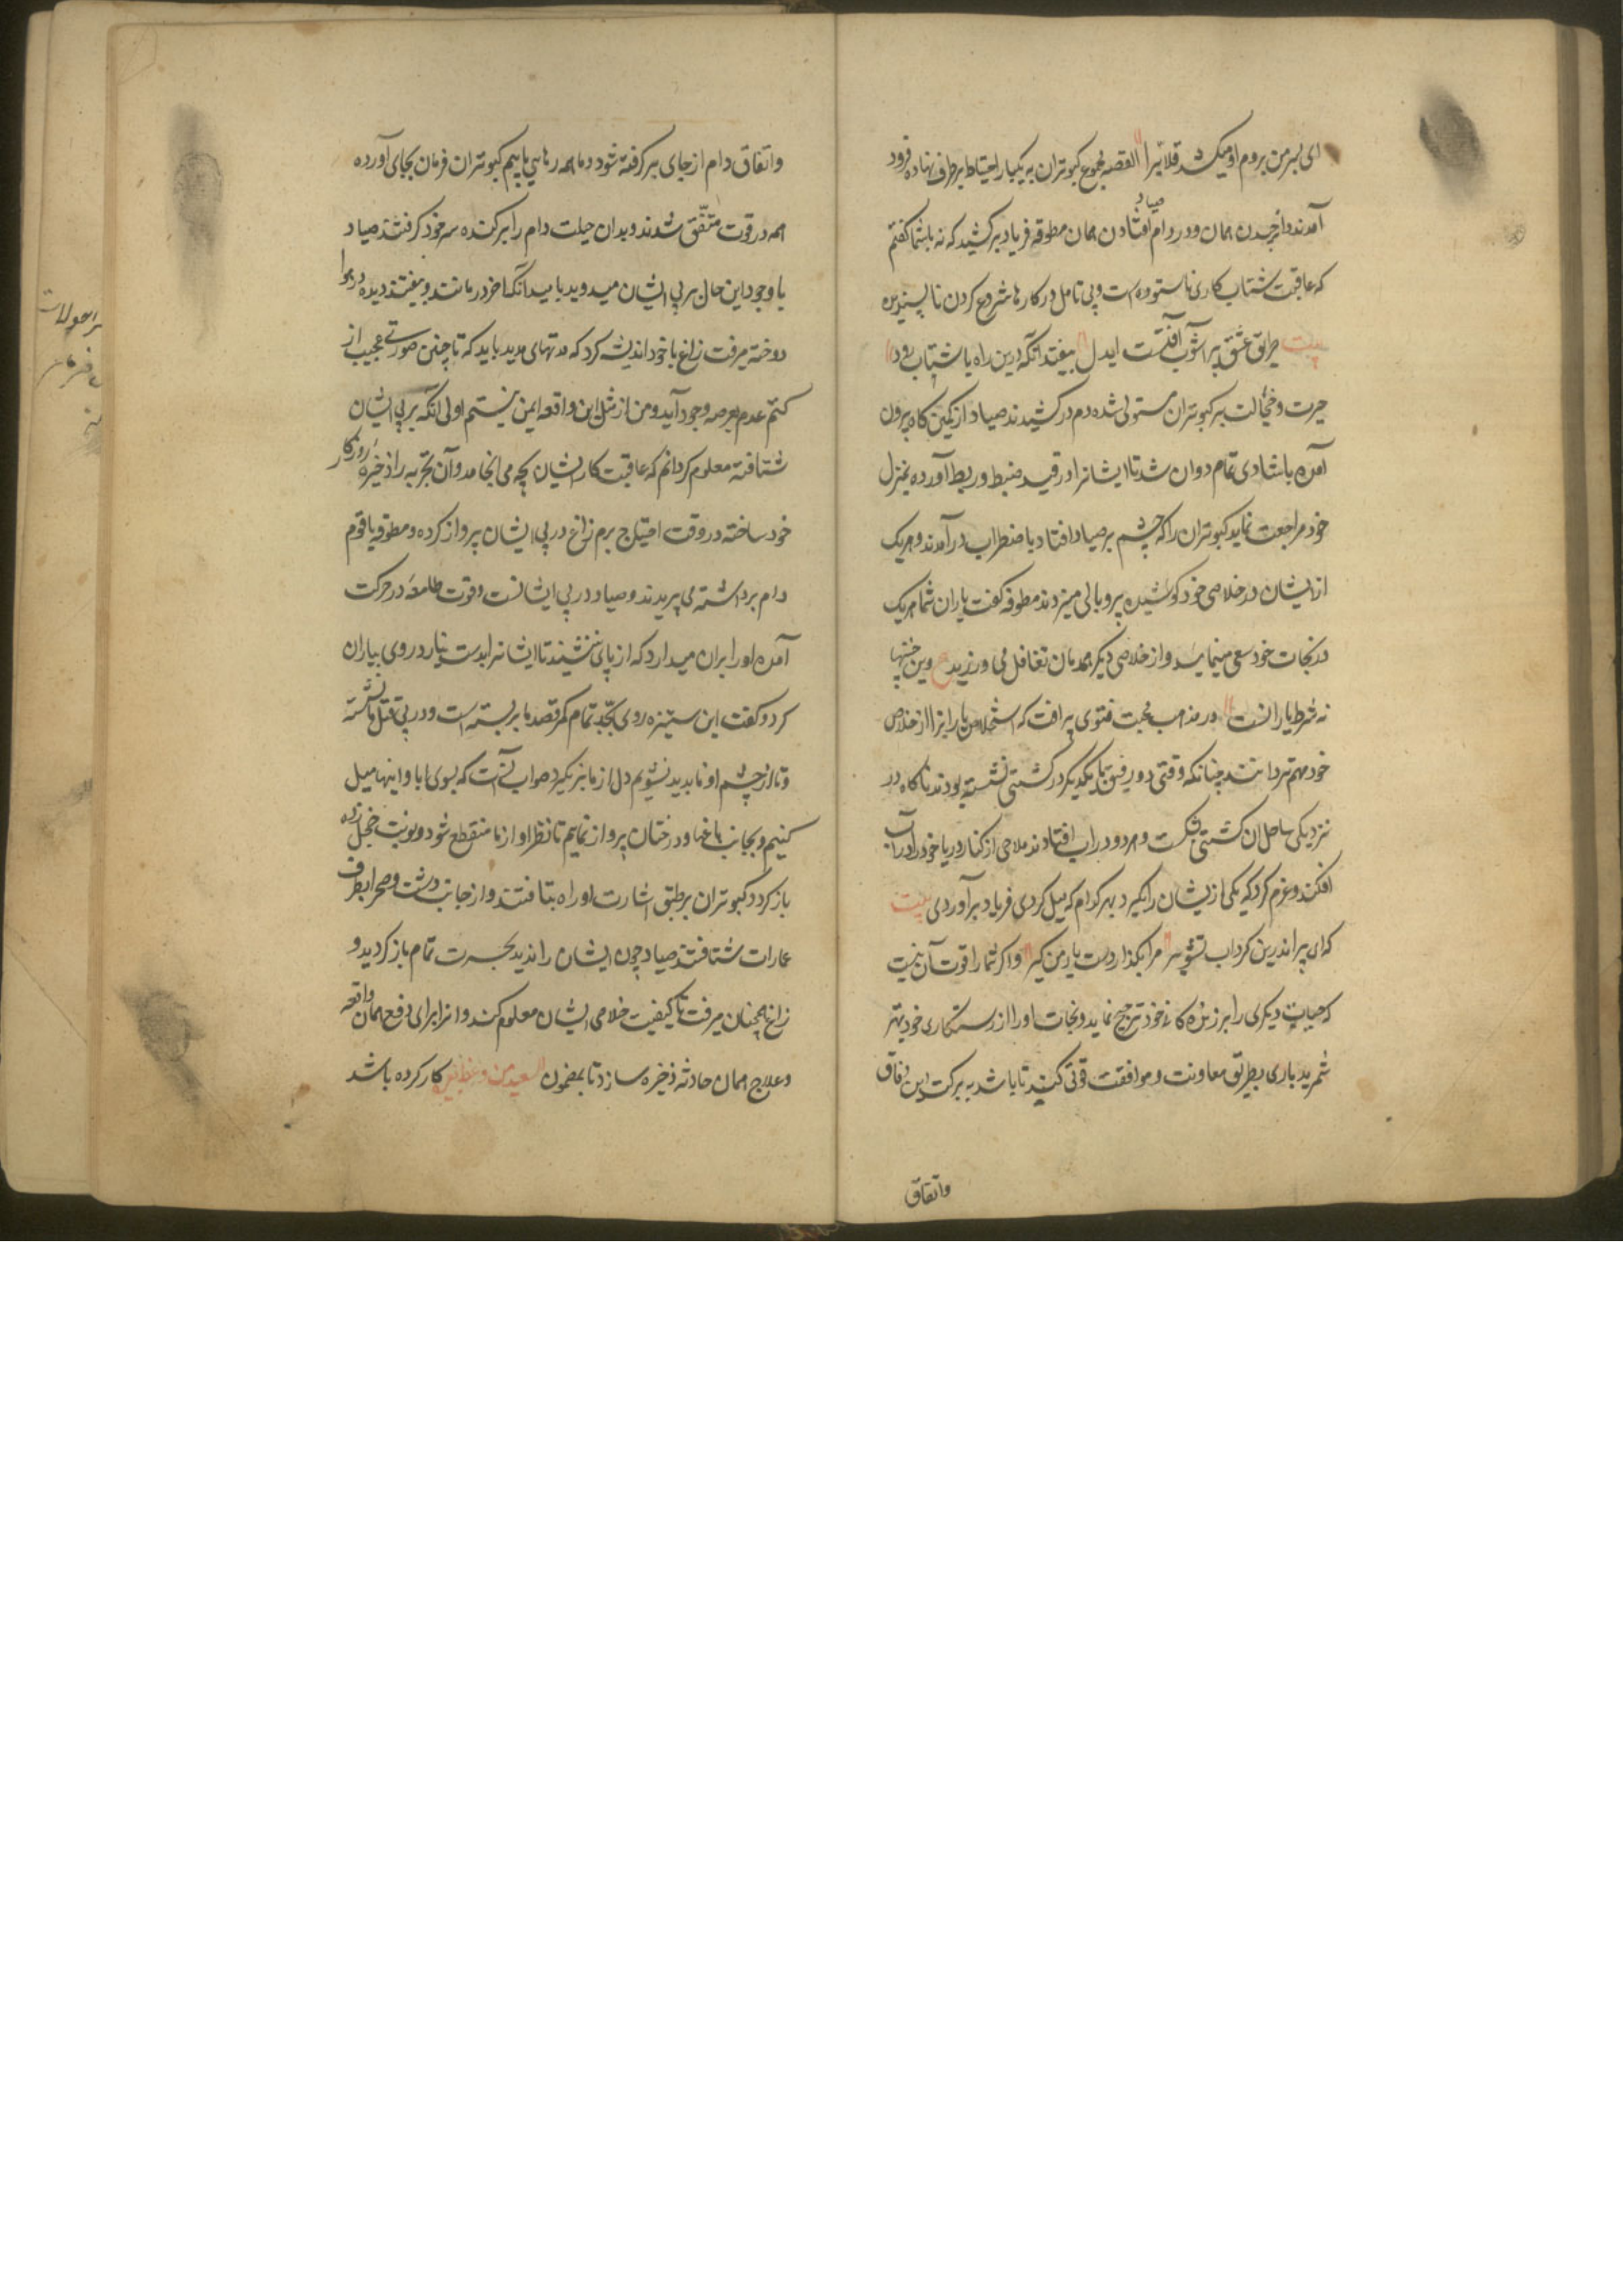 ای پسر من بروم او میکشد قلابرا القصه مجموع کبوتران به یکبار احتیاط برطرف نهاده فرود
صیاد
آمدند و دانه چیدن همان و در دام افتادن همان مطوقه فریاد برکشید که نه باشما کفتم
که عاقبت شتاب کاری ناستوده است و بی تامل در کارها شروع کردن ناپسندیده
بیت طریق عشق پر آشوب آفتست ایدل بیفتد آنکه درین راه با شتاب رود
حیرت و خجالت بر کبوتران مستولی شده دم درکشیدند صیاد از کمین کاه بیرون
آمده باشادی تمام دوان شد تا ایشانرا در قید ضبط و ربط آورده بمنزل
خود مراجعت نماید کبوتران را که چشم بر صیاد افتاد باضطراب درآمدند و هریک
از ایشان در خلاصی خود کوشیده پر و بالی میزدند مطوقه کفت یاران شما هریک
در نجات خود سعی مینمایید و از خلاصی دیکر همدمان تغافل می ورزید ع وین جنبها
نه شرط یارانست در مذهب محبت فتوی بر آفت که استخلاص یارانرا از خلاص
خود مهم تر دانند چنانکه وقتی دو رفیق با یکدیکر در کشتی نشسته بودند ناکاه در
نزدیکی ساحل ان کشتی شکست و هردو در اب افتادند ملاحی از کنار دریا خود را در آب
افکند و عزم کرد که یکی از ایشان را بکیرد بهر کدام که میل کردی فریاد برآوردی بیت
که ای پیر اندرین کرداب تشویر مرا بکذار دست یار من کیر و اکر شما را قوت آن نیست
که حیات دیکری را بر زنده کانی خود ترجیح نمایید و نجات او را از رستکاری خود بهتر
شمرید باری بطریق معاونت و موافقت قوتی کنید تا باشد به برکت این وفاق
واتفاق
واتفاق دام از جای برکرفته شود و ما همه رهایی یابیم کبوتران فرمان بجای آورده
همه در قوت متفق شدند و بدان حیلت دام را برکنده سر خود کرفتند صیاد
باوجود این حال در پی ایشان میدوید بامید آنکه آخر درمانند و بیفتند دیده در هوا
دوخته میرفت زاغ با خود اندیشه کرد که مدتهای مدید باید که تا چنین صورتی عجیب از
کتم عدم بعرصه وجود آید و من از مثل این واقعه ایمن نیستم اولی آنکه بر پی ایشان
شتافته معلوم کردانم که عاقبت کار ایشان بچه می انجامد و آن تجربه را ذخیره روزکار
خود ساخته در وقت احتیاج برم زاغ در پی ایشان پرواز کرده و مطوقه با قوم
دام برداشته می پریدند و صیاد در پی ایشانست و قوت طامعه در حرکت
آمده او را بران میدارد که از پای ننشیند تا ایشانرا بدست نیارد روی بیاران
کرد و کفت این ستیزه روی بجد تمام کمر قصد ما بربسته است و در پی قتل ما نشسته
و تا از چشم او ناپدید نشویم دل از ما بر نکیرد صواب آنست که بسوی ابادانیها میل
کنیم و بجانب باغها و درختان پرواز نماییم تا نظر او از ما منقطع شود و نومید خجل زده
باز کردد کبوتران برطبق اشارت او راه بتافتند و از جانب دشت و صحرا بطرف
عمارات شتافتند صیاد چون ایشان را ندید بحسرت تمام باز کردید و
زاغ همچنان میرفت تا کیفیت خلاصی ایشان معلوم کند و انرا برای دفع همان واقعه
و علاج همان حادثه ذخیره سازد تا بمضمون السعید من وعظ بغیره کار کرده باشد